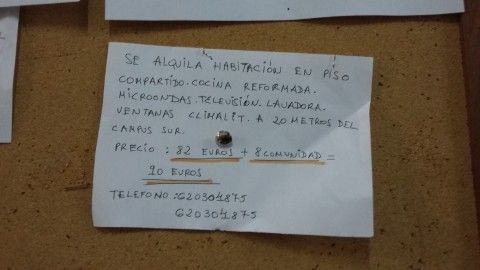 SE ALQUILA HABITACIÓN EN PISO
COMPARTIDO. COCINA REFORMADA.
MICROONDAS. TELEVISIÓN. LAVADORA.
VENTANAS CLIMALIT. A 20 METROS DEL
CAMPUS SUR.
PRECIO : 82 EUROS + 8 COMUNIDAD =
90 EUROS
TELEFONO : 620301875
620301875